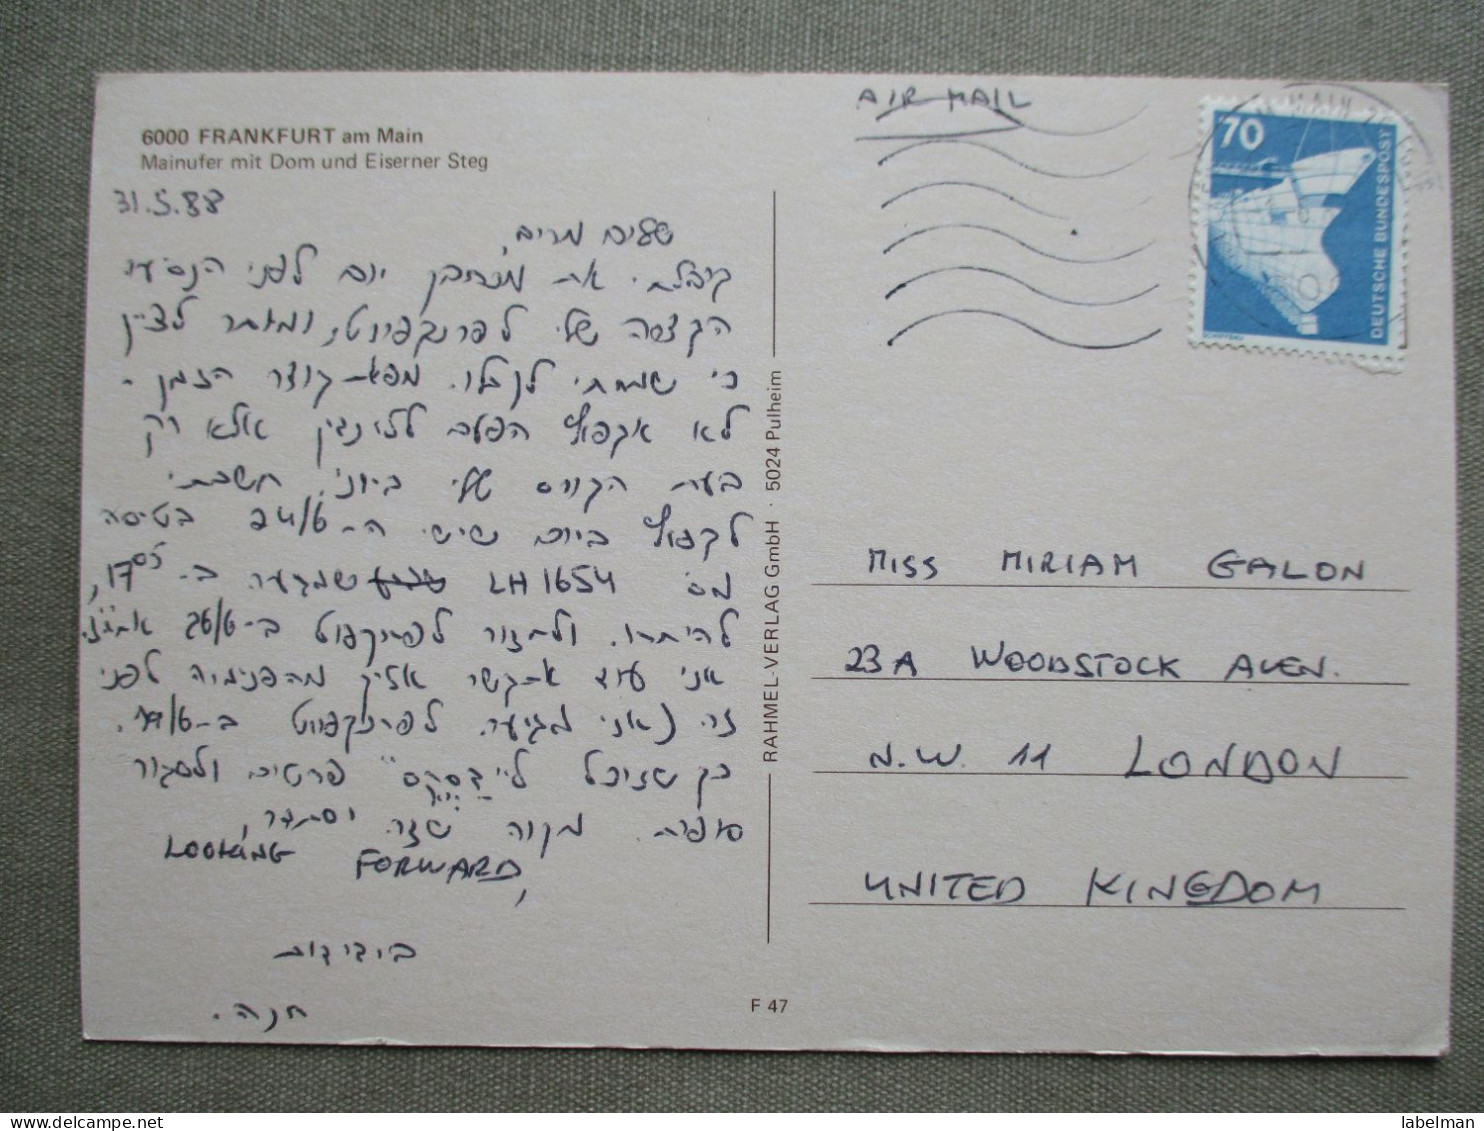 6000 FRANKFURT am Main
Mainufer mit Dom und Eiserner Steg
31.5.88
שלום מרים,
קיבלתי את מכתבך יום לפני הנסיעה
הקצרה שלי לפרנקפורט, ומותר לציין
כי שמחתי לקבלו. מפאת קוצר הזמן -
לא אקפוץ הפעם ללונדון אלא רק
בעת הקורס שלי ביוני. חשבתי
לקפוץ ביום שישי ה-24/6 בטיסה
מס' LH 1654 שמגיעה ב-17:05,
להית'רו. ולחזור לפרנקפורט ב-26/6
אני עוד אתקשר אליך מהפנימיה לפני
זה כשאני מגיעה לפרנקפורט ב-19/6.
כך שנוכל פרטים ולסגור
סופית. מקווה שזה יסתדר,
LOOKING FORWARD,
בידידות
חנה.
AIR MAIL
70
DEUTSCHE BUNDESPOST
RAHMEL-VERLAG GmbH · 5024 Pulheim
MISS MIRIAM GALON
23A WOODSTOCK AVEN.
N.W. 11 LONDON
UNITED KINGDOM
F 47
labelman